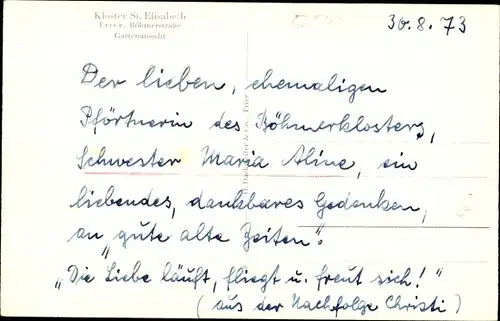 Kloster St. Elisabeth
Trier, Böhmerstraße
Gartenansicht
30.8.73
Der lieben, ehemaligen
Pförtnerin des Böhmerklosters,
Schwester Maria Aline, ein
liebendes, dankbares Gedenken,
an "gute alte Zeiten".
"Die Liebe läuft, fliegt u. freut sich!"
(aus der Nachfolge Christi)